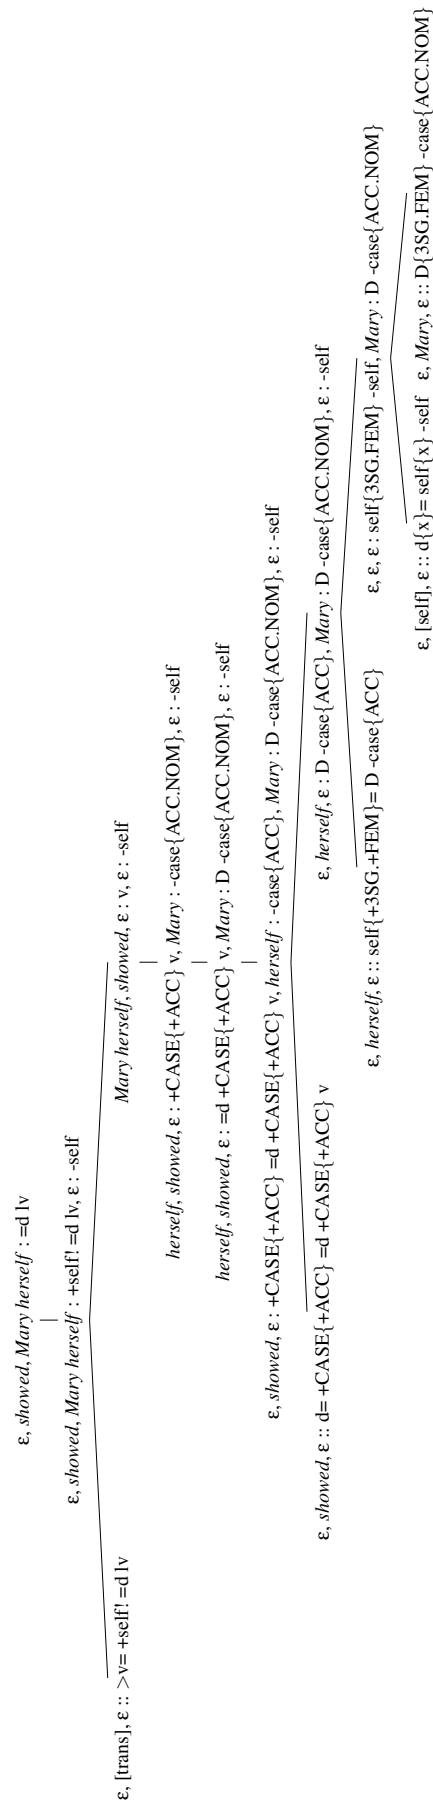 ε, showed, Mary herself : =d lv
ε, showed, Mary herself : +self! =d lv, ε : -self
ε, [trans], ε :: >v= +self! =d lv
Mary herself, showed, ε : v, ε : -self
herself, showed, ε : +CASE{+ACC} v, Mary : -case{ACC.NOM}, ε : -self
herself, showed, ε : =d +CASE{+ACC} v, Mary : D -case{ACC.NOM}, ε : -self
ε, showed, ε : +CASE{+ACC} =d +CASE{+ACC} v, herself : -case{ACC}, Mary : D -case{ACC.NOM}, ε : -self
ε, showed, ε :: d= +CASE{+ACC} =d +CASE{+ACC} v
ε, herself, ε : D -case{ACC}, Mary : D -case{ACC.NOM}, ε : -self
ε, herself, ε :: self{+3SG.+FEM}= D -case{ACC}
ε, ε, ε : self{3SG.FEM} -self, Mary : D -case{ACC.NOM}
ε, [self], ε :: d{x}= self{x} -self
ε, Mary, ε :: D{3SG.FEM} -case{ACC.NOM}